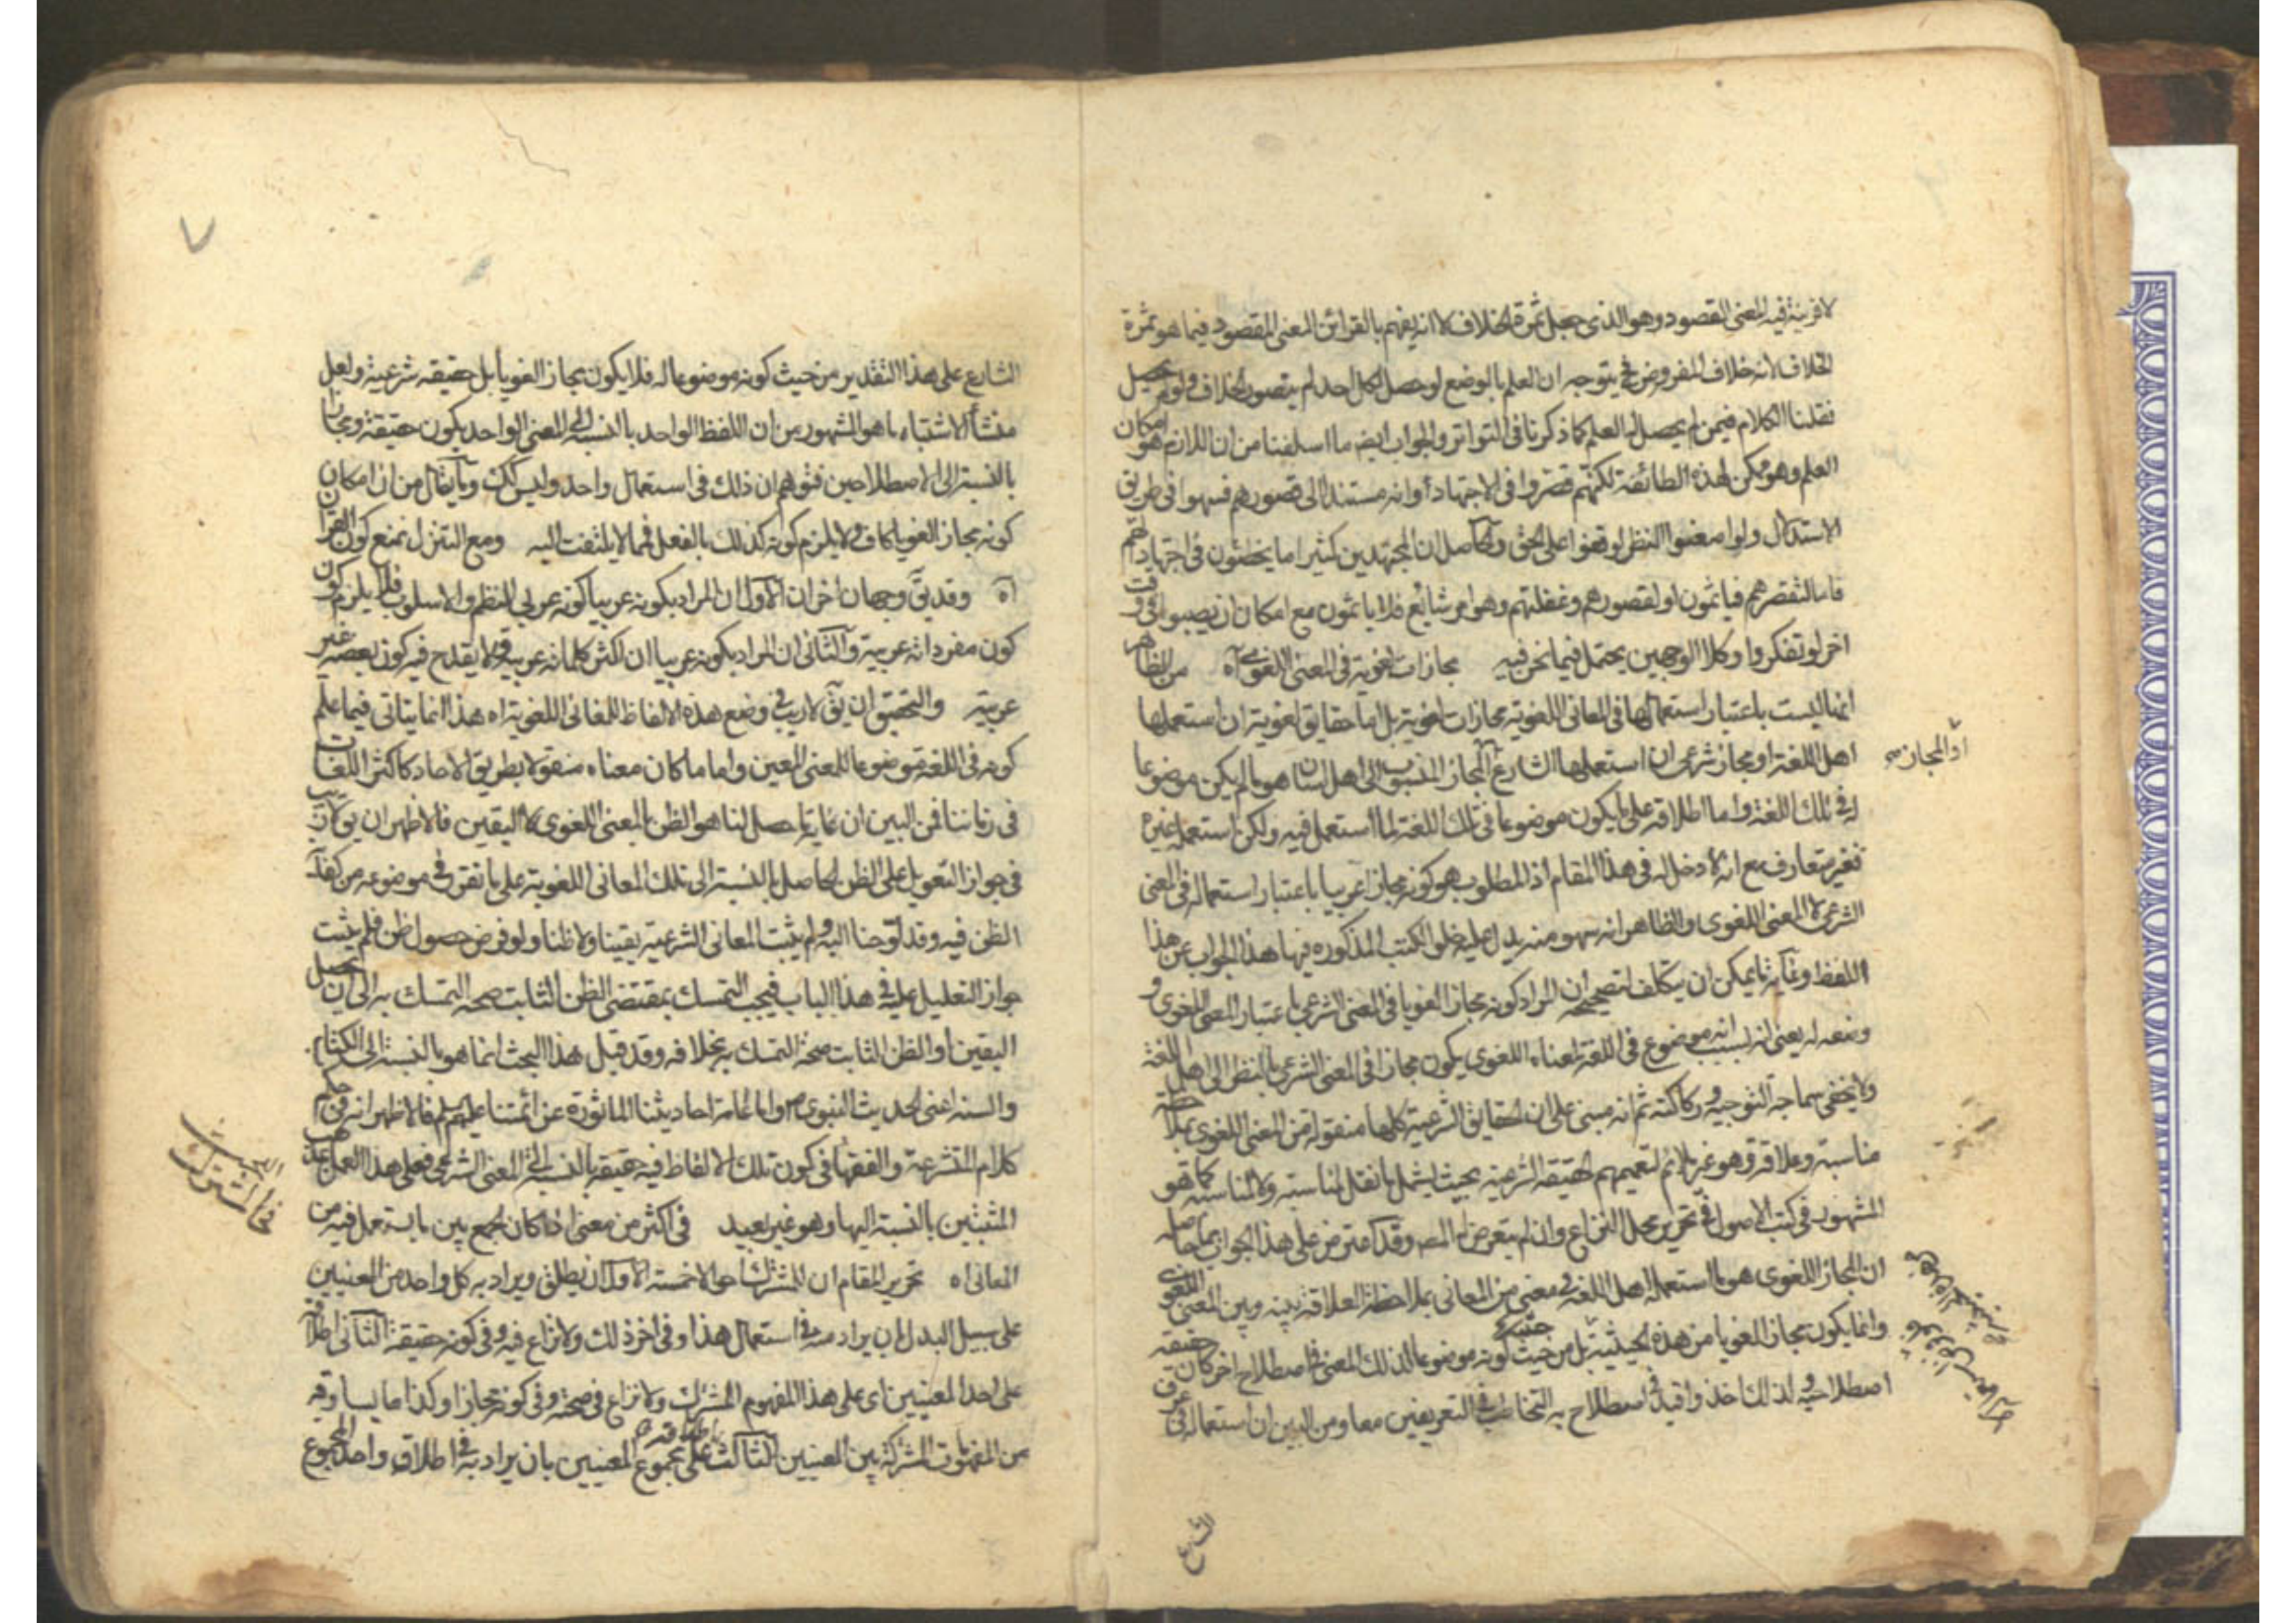 لا قرينة فيه المعنى المقصود وهو الذى جعل ثمرة الخلاف لا انه يفهم بالقرائن المعنى المقصود فيما هو ثمرة
الخلاف لانه خلاف المفروض فح يتوجه ان العلم بالوضع لو حصل لكل احد لم يتصور الخلاف ولو لم يحصل
نقلنا الكلام فيمن لم يحصل له العلم كما ذكرنا فى التواتر والجواب ايضا ما اسلفنا من ان اللازم هو امكان
العلم وهو ممكن لهذه الطائفة لكنهم قصروا فى الاجتهاد أو انه مستند الى قصورهم فسهوا فى طريق
الاستدلال ولو امعنوا النظر لوقفوا على الحق والحاصل ان المجتهدين كثيرا ما يخطئون فى اجتهادهم
فاما لتقصيرهم فياثمون او لقصورهم وغفلتهم وهو امر شائع فلا ياثمون مع امكان ان يصيبوا فى وقت
اخر لو تفكروا وكلا الوجهين يحتمل فيما نحن فيه مجازات لغوية فى المعنى اللغوى آه من الظاهر
انها ليست باعتبار استعمالها فى المعانى اللغوية مجازات لغوية بل اما حقايق لغوية ان استعملها
اهل اللغة او مجاز شرعى ان استعملها الشارع المجاز المنسوب الى اهل لسان هو ما لم يكن موضوعا
له فى تلك اللغة واما اطلاقه على ما يكون موضوعا فى تلك اللغة لما استعمل فيه ولكن استعمله غيره
فغير متعارف مع انه لا دخل له فى هذا المقام اذ المطلوب هو كونه مجازا عربيا باعتبار استعماله فى المعنى
الشرعى لا المعنى اللغوى والظاهر انه سهو منه يدل عليه خلو الكتب المذكوره فيها هذا الجواب عن هذا
اللفظ وغاية ما يمكن ان يتكلف لتصحيحه ان المراد كونه مجازا لغويا فى المعنى الشرعى باعتبار المعنى اللغوى و
وضعه له يعنى انه لسبب انه موضوع فى اللغة لمعناه اللغوى يكون مجازا فى المعنى الشرعى بالنظر الى اهل اللغة
ولا يخفى سماجة التوجيه وركاكته ثم انه مبنى على ان الحقايق الشرعية كلها منقولة من المعنى اللغوى بملاحظة
مناسبة وعلاقة وهو غير لازم لتعميمهم الحقيقة الشرعية بحيث يشمل ما نقل لمناسبة ولا لمناسبة كما هو
المشهور فى كتب الاصول فى تحرير محل النزاع وان لم يتعرض له المصـ وقد اعترض على هذا الجواب بما حاصله
ان المجاز اللغوى هو ما استعمله اهل اللغة فى معنى من المعانى بملاحظة العلاقة بينه وبين المعنى اللغوى
وانما يكون مجازا لغويا من هذه الحيثية بل من حيث كونه موضوعا لذلك المعنى فى اصطلاح اخر كان حقيقة
اصطلاحية ولذلك اخذوا قيد فى اصطلاح به التخاطب فى التعريفين معا ومن البين ان استعماله فى عرف
او المجاز
الشارع
٧
الشارع على هذا التقدير من حيث كونه موضوعا له فلا يكون مجازا لغويا بل حقيقة شرعية ولعل
منشأ الاشتباه ما هو المشهور من ان اللفظ الواحد بالنسبة الى المعنى الواحد يكون حقيقة ومجازا
بالنسبة الى الاصطلاحين فتوهم ان ذلك فى استعمال واحد وليس كك وما يقال من ان امكان
كونه مجازا لغويا كاف ولا يلزم كونه كذلك بالفعل فمما لا يلتفت اليه ومع التنزل نمنع كون القران
آه وقد يق وجهان اخران الاول ان المراد بكونه عربيا كونه عربى النظم والاسلوب فلا يلزم كون
كون مفرداته عربية والثانى ان المراد بكونه عربيا ان اكثر كلماته عربية ولا يقدح فيه كون بعضه غير
عربية والتحقيق ان يق لا ريب فى وضع هذه الالفاظ للمعانى اللغوية اه هذا انما يتاتى فيما علم
كونه فى اللغة موضوعا للمعنى المعين واما ما كان معناه منقولا بطريق الاحاد كاكثر اللغات
فى زماننا فمن البين ان غاية ما يحصل لنا هو الظن بالمعنى اللغوى لا اليقين فالاظهر ان يق لا ريب
فى جواز التعويل على الظن الحاصل بالنسبة الى تلك المعانى اللغوية على ما تقرر فى موضعه من كفاية
الظن فيه وقد احوجنا اليه ولم يثبت المعانى الشرعية يقينا ولا ظنا ولو فرض حصول ظن فلم يثبت
جواز التعليل عليه فى هذا الباب فيجب التمسك بمقتضى الظن الثابت صحة التمسك به الى ان يحصل
اليقين او الظن الثابت صحة التمسك به بخلافه وقد قيل هذا البحث انما هو بالنسبة الى الكتاب
والسنه اعنى الحديث النبوى ص واما عامة احاديثنا الماثورة عن ائمتنا عليهم السلم فالاظهر انه فى حكم
كلام المتشرعة والفقهاء فى كون تلك الالفاظ فيه حقيقة بالنسبة الى المعنى الشرعى فعلى هذا العمل على مذهب
المثبتين بالنسبة اليها وهو غير بعيد فى اكثر من معنى اذا كان الجمع بين ما يستعمل فيه من
المعانى اه تحرير المقام ان للمشترك احوالا خمسة الاول ان يطلق ويراد به كل واحد من المعنيين
على سبيل البدل بان يراد به فى استعمال هذا وفى اخر ذلك ولا نزاع فيه وفى كونه حقيقة الثانى اطلاقه
على احد المعنيين اى على هذا المفهوم المشترك ولا نزاع فى صحته وفى كونه مجازا وكذا ما يساوقه
من المفهومات المشتركة بين المعنيين الثالث اطلاقه على مجموع المعنيين بان يراد به فى اطلاق واحد المجموع